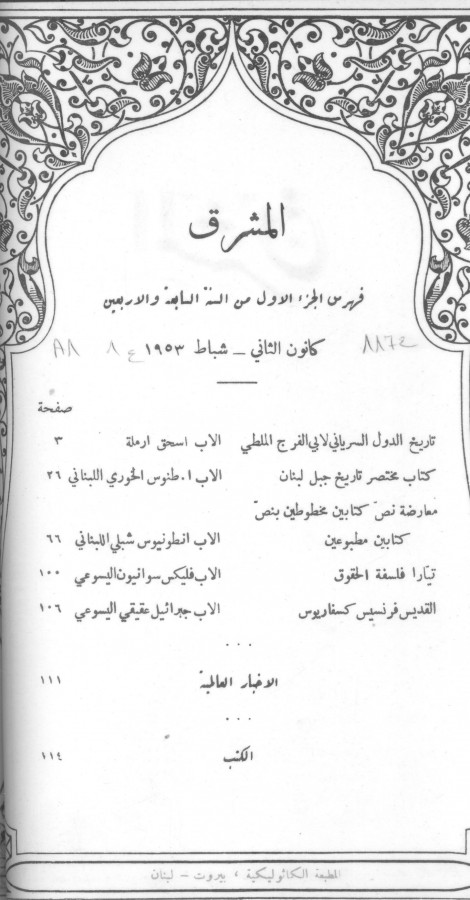 المشرق
فهرس الجزء الاول من السنة السابعة والاربعين
كانون الثاني – شباط ١٩٥٣
صفحة
تاريخ الدول السرياني لابي الفرج الملطي الاب اسحق ارملة ٣
كتاب مختصر تاريخ جبل لبنان الاب ا. طنوس الخوري اللبناني ٢٦
معارضة نصّ كتابين مخطوطين بنصّ
كتابين مطبوعين الاب انطونيوس شبلي اللبناني ٦٦
تيّارا فلسفة الحقوق الاب فليكس سوانيون اليسوعي ١٠٠
القديس فرنسيس كسفاريوس الاب جبرائيل عقيقي اليسوعي ١٠٦
...
الاخبار العالمية ١١١
...
الكتب ١١٤
المطبعة الكاثوليكية ، بيروت – لبنان